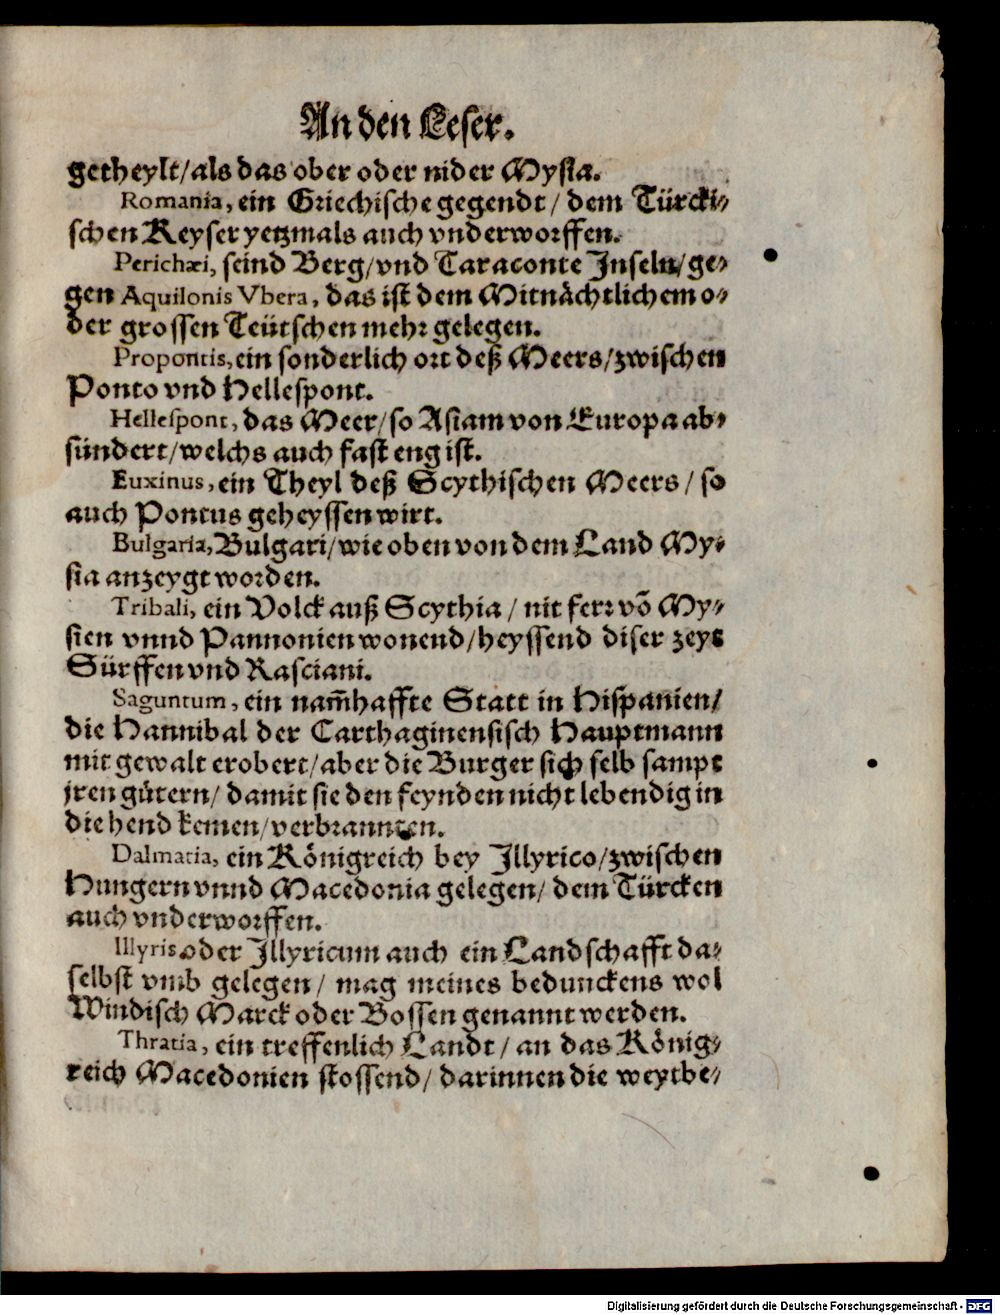 An den Leser.
getheylt/als das ober oder nider Mysia.
Romania, ein Griechische gegendt/ dem Türcki⸗
schen Keyser yetzmals auch vnderworffen.
Perichæi, seind Berg/vnd Taraconte Inseln/ge⸗
gen Aquilonis Vbera, das ist dem Mitnächtlichem o⸗
der grossen Teütschen mehr gelegen.
Propontis, ein sonderlich ort deß Meers/zwischen
Ponto vnd Hellespont.
Hellespont, das Meer/so Asiam von Europa ab⸗
sündert/welchs auch fast eng ist.
Euxinus, ein Theyl deß Scythischen Meers/ so
auch Pontus geheyssen wirt.
Bulgaria, Bulgari/wie oben von dem Land My⸗
sia anzeygt worden.
Tribali, ein Volck auß Scythia/ nit ferr võ My⸗
sien vnnd Pannonien wonend/heyssend diser zeyt
Sürffen vnd Rasciani.
Saguntum, ein nam̃haffte Statt in Hispanien/
die Hannibal der Carthaginensisch Hauptmann
mit gewalt erobert/aber die Burger sich selb sampt
jren gütern/ damit sie den feynden nicht lebendig in
die hend kemen/verbrannten.
Dalmatia, ein Königreich bey Illyrico/zwischen
Hungern vnnd Macedonia gelegen/ dem Türcken
auch vnderworffen.
Illyris oder Illyricum auch ein Landschafft da⸗
selbst vmb gelegen/ mag meines bedunckens wol
Windisch Marck oder Bossen genannt werden.
Thratia, ein treffenlich Landt/ an das König⸗
reich Macedonien stossend/ darinnen die weytbe⸗
Digitalisierung gefördert durch die Deutsche Forschungsgemeinschaft - DFG